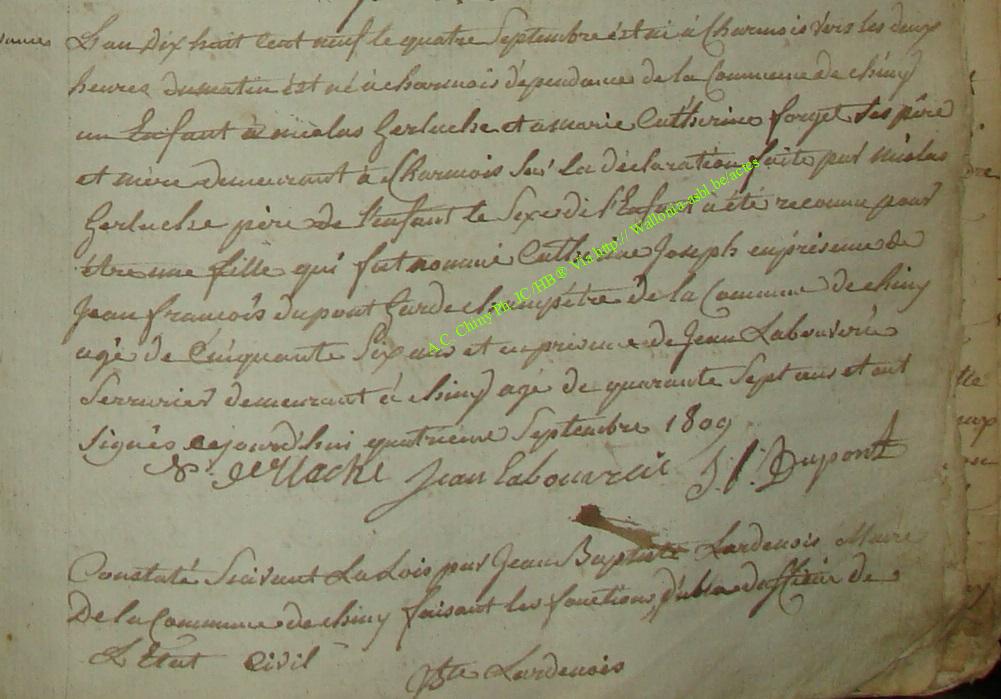 L'an Dix huit Cent neuf le quatre Septembre est né à Charmois Vers les deux
heures du matin est né à charmois dépendance de la Commune de chiny
un Enfant a nicolas Gerlache et a marie Catherine forget Ses père
et mère demeurant à Charmois Sur la déclaration faite par nicolas
Gerlache père de l'enfant le Sexe de l'Enfant a été reconnu pour
être une fille qui fut nommé Catherine Joseph en présence de
Jean françois dupont Garde champêtre de la Commune de chiny
agé de Cinquante Six ans et en présence de Jean Labouverie
Serrurier demeurant à chiny agé de quarante Sept ans et ont
Signés cejourd'hui quatrième Septembre 1809
N. Gerlache Jean Labouverie J. f. Dupont
Constaté Suivant La Lois par Jean Baptiste Lardenois Maire
De la Commune de chiny faisant les fonctions d'officier de
L'Etat Civil
Bte Lardenois
A.C. Chiny Ph. JC /HB ® Via http:// Wallonia-asbl.be/actes